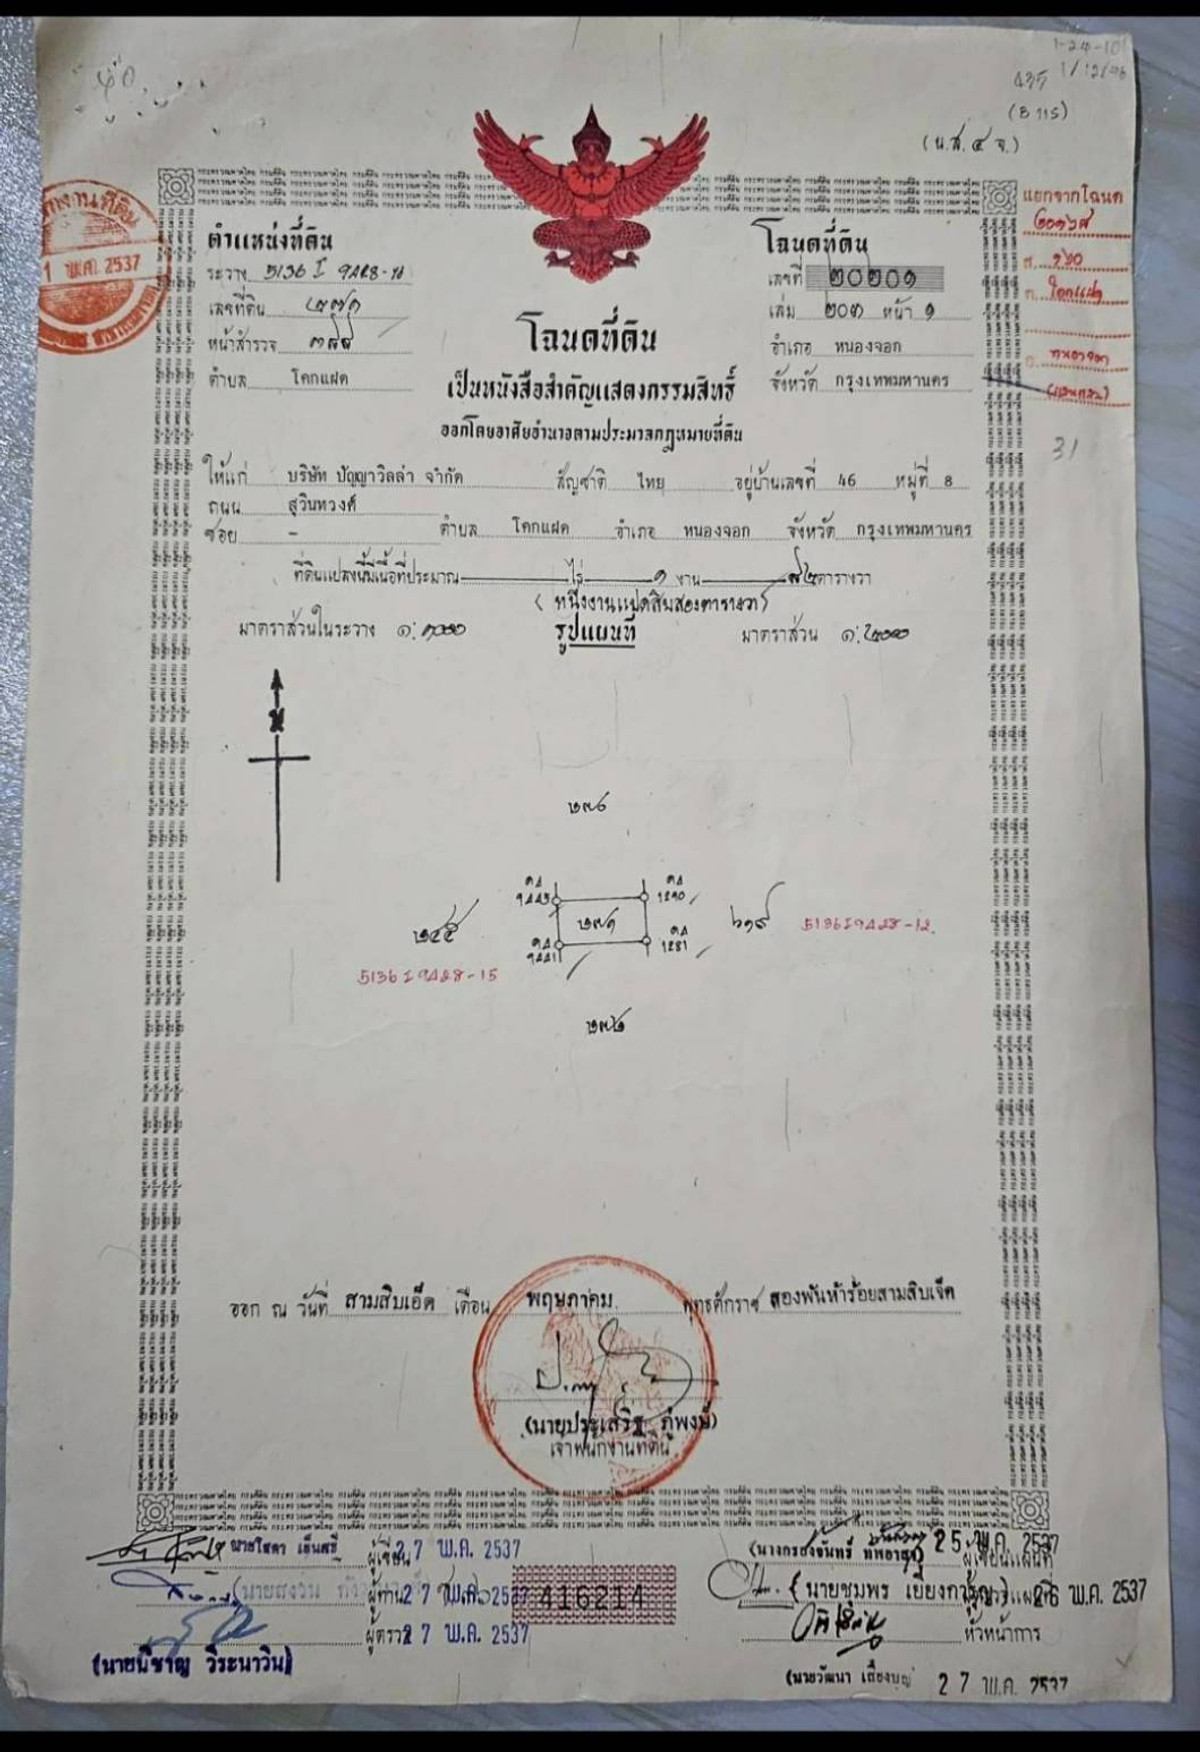 (น.ส. ๔ จ.)
แยกจากโฉนด
สำนักงานที่ดิน
พ.ค. 2537
ตำแหน่งที่ดิน
ระวาง 5136 I 9428-11
เลขที่ดิน ๒๗๑
หน้าสำรวจ
ตำบล โคกแฝด
โฉนดที่ดิน
เลขที่ ๒๐๒๐๑
เล่ม ๒๐๓ หน้า ๑
อำเภอ หนองจอก
จังหวัด กรุงเทพมหานคร
ต. โคกแฝด
อ. หนองจอก
31
โฉนดที่ดิน
เป็นหนังสือสำคัญแสดงกรรมสิทธิ์
ออกโดยอาศัยอำนาจตามประมวลกฎหมายที่ดิน
ให้แก่ บริษัท ปัญญาวิลล่า จำกัด สัญชาติ ไทย อยู่บ้านเลขที่ 46 หมู่ที่ 8
ถนน สุวินทวงศ์
ซอย - ตำบล โคกแฝด อำเภอ หนองจอก จังหวัด กรุงเทพมหานคร
ที่ดินแปลงนี้มีเนื้อที่ประมาณ ไร่ ๑ งาน ๘๒ ตารางวา
(หนึ่งงานแปดสิบสองตารางวา)
มาตราส่วนในระวาง ๑:๑๐๐๐ รูปแผนที่ มาตราส่วน ๑:๒๐๐๐
น
๒๗๐
5136 I 9428-12
๒๗๑
๒๔๕
5136 I 9428-15
๒๗๒
ออก ณ วันที่ สามสิบเอ็ด เดือน พฤษภาคม พุทธศักราช สองพันห้าร้อยสามสิบเจ็ด
(นายประเสริฐ ภู่พงษ์)
เจ้าพนักงานที่ดิน
ผู้เขียน 27 พ.ค. 2537
25 พ.ค. 2537
ผู้เขียนแผนที่
27 พ.ค. 2537
416214
26 พ.ค. 2537
ผู้ตรวจ 27 พ.ค. 2537
หัวหน้าการ
(นายนิชาญ วีระนาวิน)
27 พ.ค. 2537